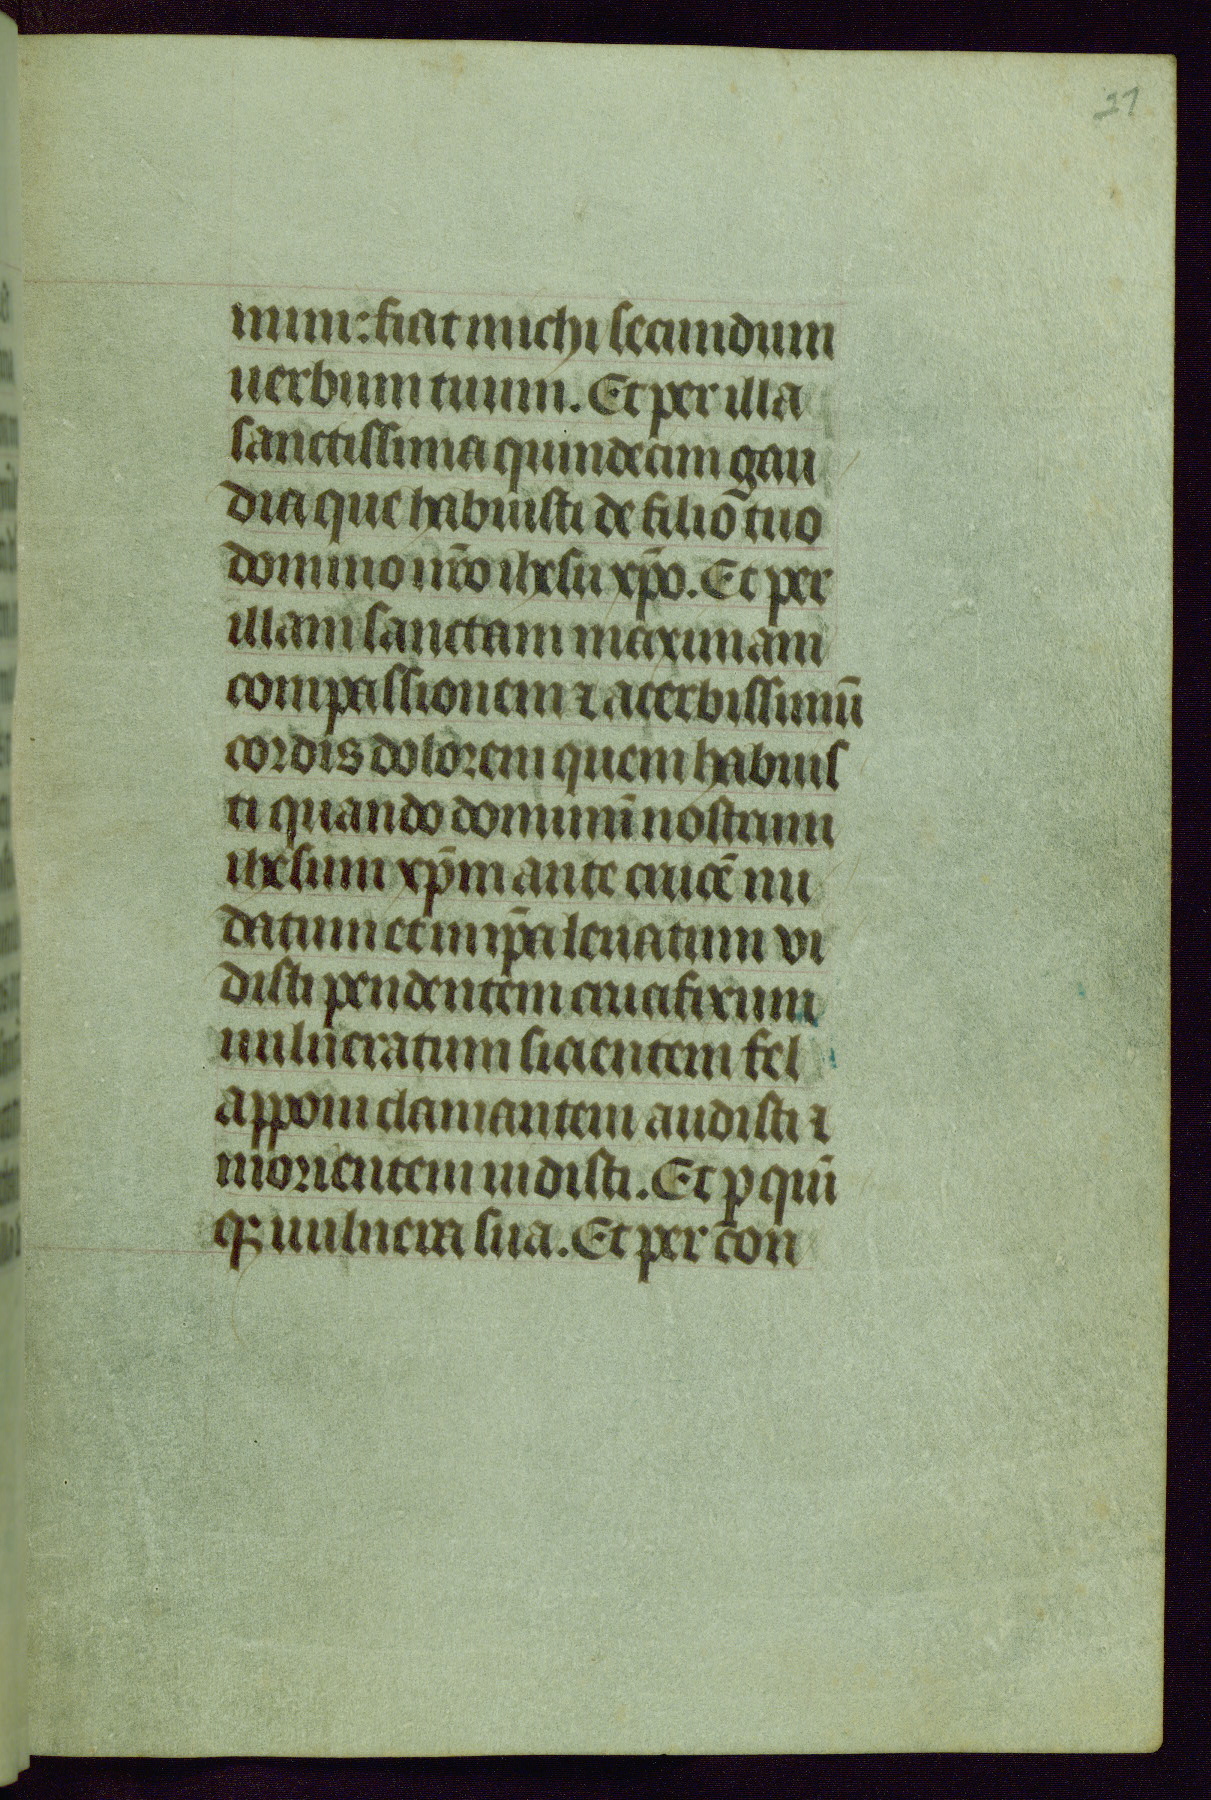 21
mini: fiat michi secundum
uerbum tuum. Et per illa
sanctissima quindecim gau
dia que habuisti de filio tuo
domino nr̄o ihesu xp̄o. Et per
illam sanctam maximam
compassionem ⁊ acerbissimū
cordis dolorem quem habuis
ti quando dominū nostrum
ihesum xp̄m ante crucē nu
datum et in ip̄a leuatum vi
disti pendentem crucifixum
uulneratum sicientem fel
apponi clamantem audisti ⁊
morientem uidisti. Et ꝑ quī
qꝫ uulnera sua. Et per con